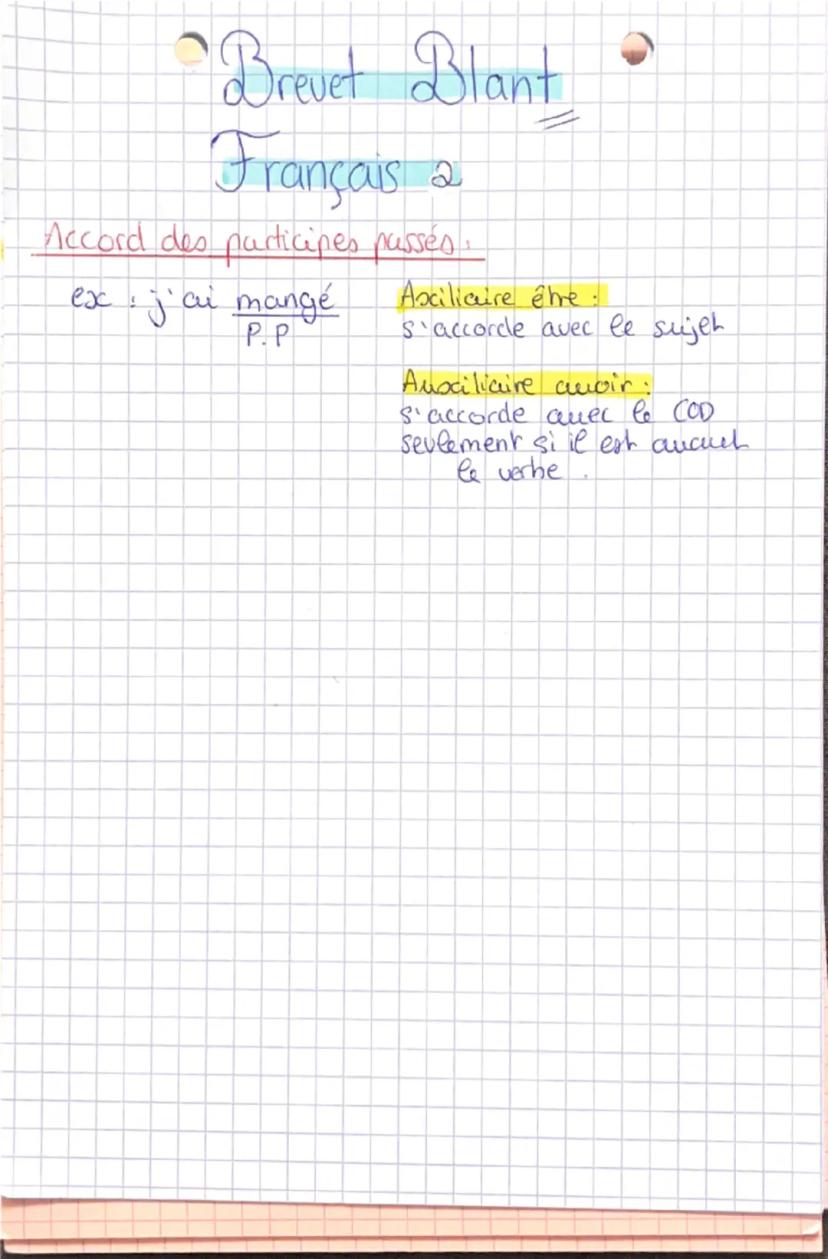 Brevet Blant
Français 2
Accord des participes passés :
ex : j'ai mangé
P.P
Axiliaire être :
s'accorde avec le sujet
Auxiliaire avoir :
s'accorde avec le COD
seulement si il est avant
le verbe.